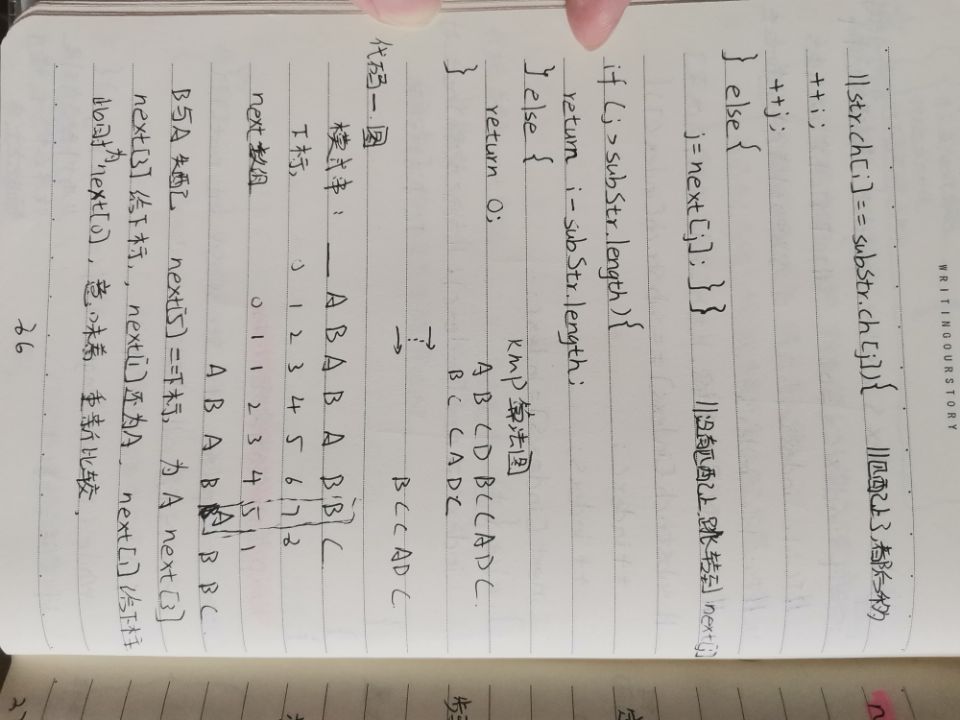 WRITINGOURSTORY
||str.ch[i]==substr.ch[j]){ //匹配上了,都后移
++i;
++j;
} else {
j=next[j]; } } //没有匹配上,跳转到next[j]
if (j>substr.length){
return i-substr.length;
} else {
return 0;
}
kmp算法图
A B C D B C C A D C
B C C A D C
B C C A D C
代码一图
模式串: A B A B A B B C
下标 0 1 2 3 4 5 6 7 8
next数组 0 1 1 2 3 4 5 1
A B A B A B B C
B与A失配 next[5]==下标 为A next[3]
next[3]给下标, next[1]还为A, next[1]给下标
此时为next[0], 意味着重新比较,
36
37